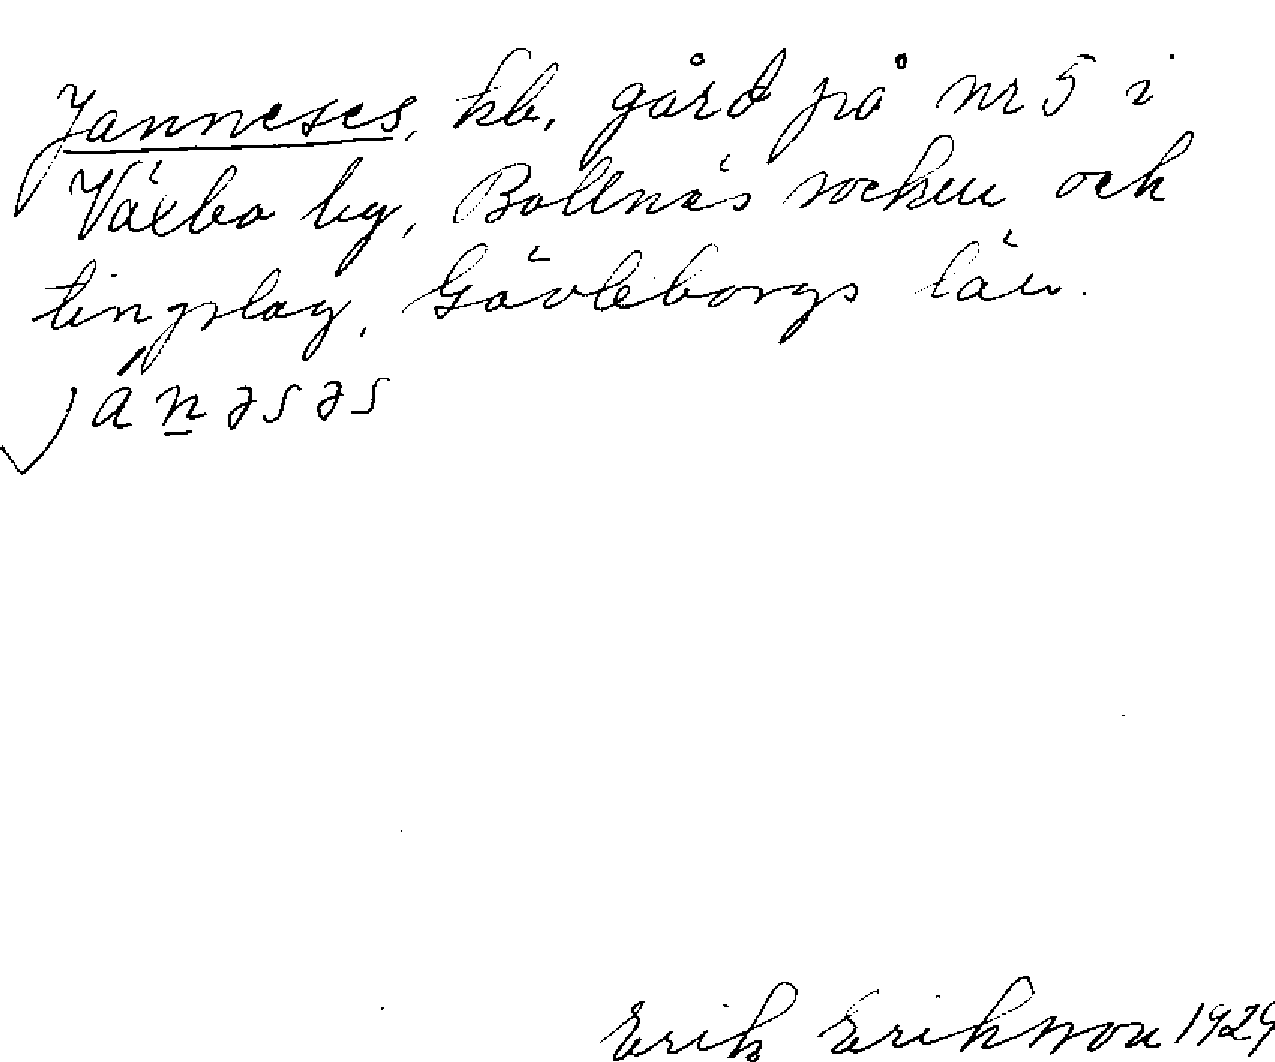 Janneses, kb. gård på nr 5 i
Växbo by, Bollnäs socken och
tingslag, Gävleborgs län.
jánəsəs
Erik Erikson 1929